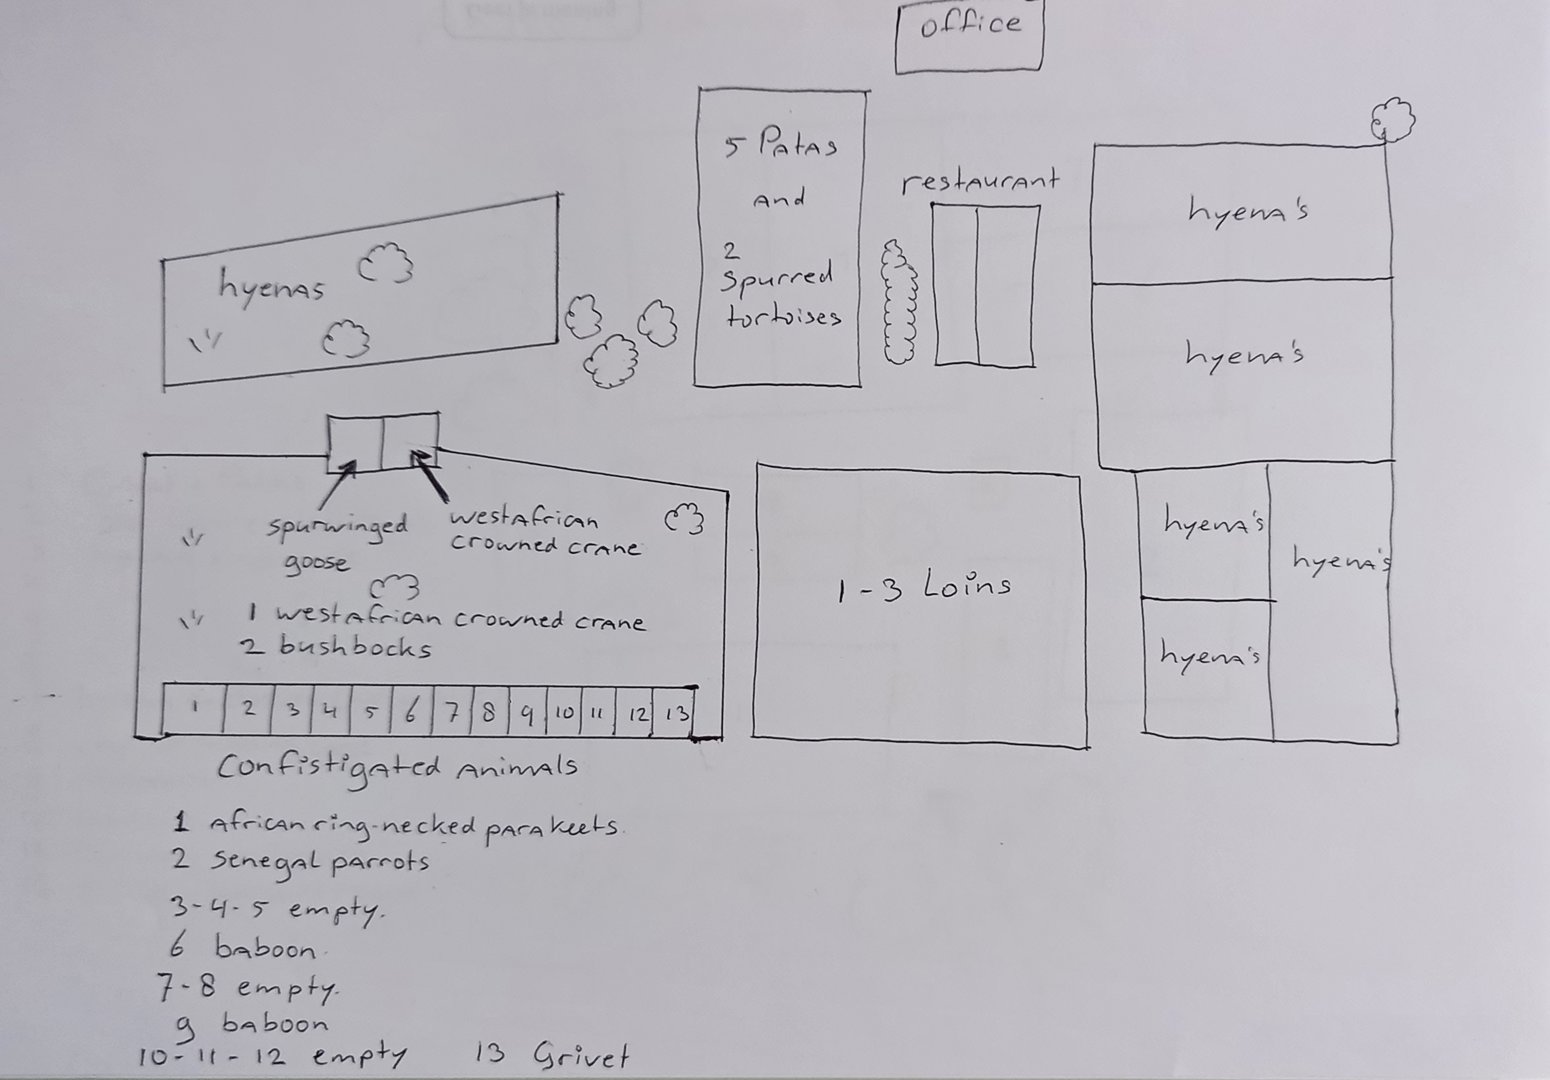 office
5 Patas
and
2
Spurred
tortoises
restaurant
hyena's
hyenas
hyena's
spurwinged
goose
westAfrican
crowned crane
hyena's
hyena's
1-3 Loins
1 westafrican crowned crane
2 bushbocks
hyena's
1 2 3 4 5 6 7 8 9 10 11 12 13
Confistigated animals
1 african ring-necked parakeets.
2 Senegal parrots
3-4-5 empty.
6 baboon.
7-8 empty.
9 baboon
10-11-12 empty 13 Grivet